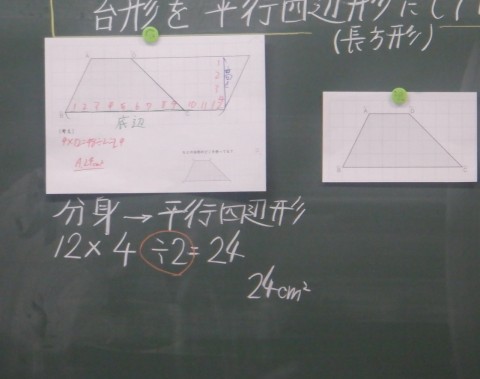 台形を平行四辺形に
(長方形)
1 2 3 4 5 6 7 8 9 10 11 12
底辺
分身→平行四辺形
12×4÷2=24
24cm²